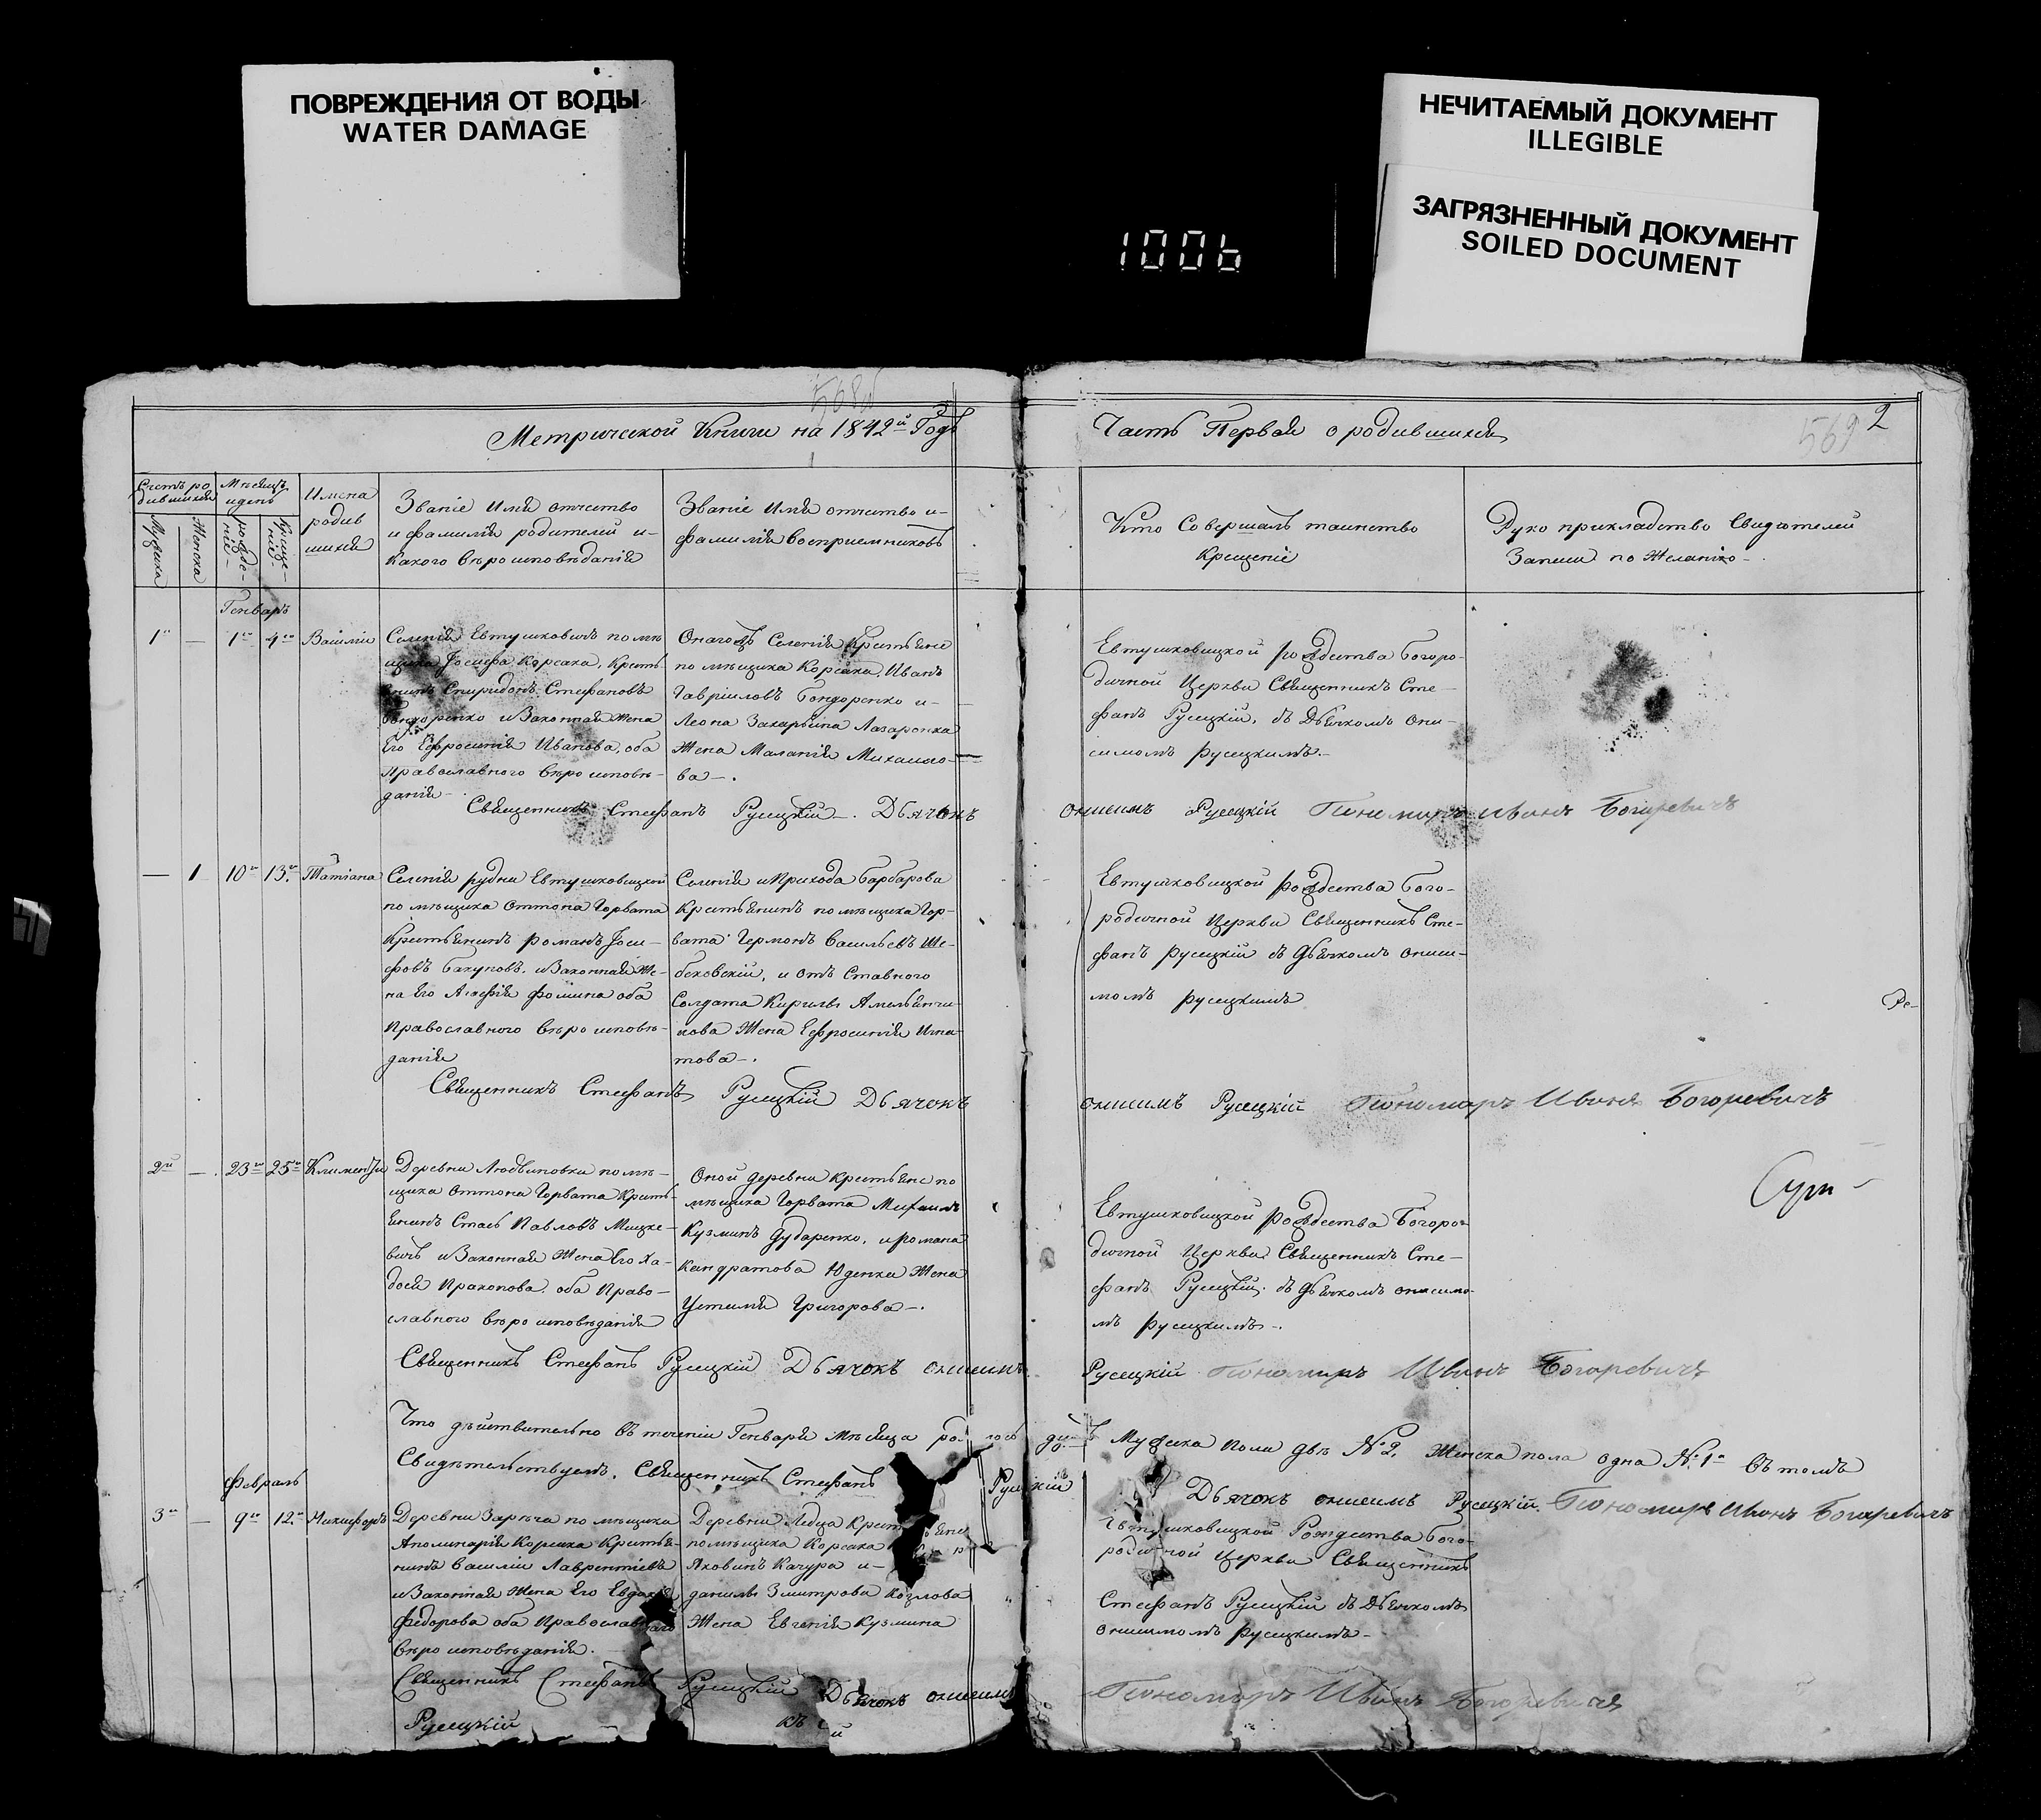 ПОВРЕЖДЕНИЯ ОТ ВОДЫ
WATER DAMAGE
НЕЧИТАЕМЫЙ ДОКУМЕНТ
ILLEGIBLE
ЗАГРЯЗНЕННЫЙ ДОКУМЕНТ
SOILED DOCUMENT
1006
568об
569
2
Метрической Книги на 1842й Годъ
Часть Первая о родившихся
Счетъ ро
дившихся
Мужеска
Женска
Мѣсяцъ
и день
рожде-
ние-
Креще-
ние.
Имена
родив
шихся
Званіе Имя отчество
и фамилія родителей и-
Какого вѣроисповѣданія
Званіе Имя отчество и-
фамилія воспріемниковъ
Кто Совершалъ таинство
Крещеніе
Руко прикладство Свидѣтелей
Записи по Желанію-
Генварь
1й
—
1го
4го
Василіи
Селенія Евтушковичъ помѣ
щика Іосифа Корсака, Кресть-
янинъ Спиридонъ Стефановъ
Бондоренко и Законная Жена
Его Ефросинія Иванова, оба
Православного вѣро исповѣ-
данія-
Онагожъ Селенія Крестьяне
помѣщика Корсака, Иванъ
Гавріиловъ Бондоренко и-
Леона Захарьина Лазаронка
Жена Маланія Михаило-
ва-.
Евтушковицкой рождества богоро-
дичной Церкви Священникъ Сте-
фанъ Русецкій, съ Дьячкомъ они-
симомъ русецкимъ.-
Священникъ Стефанъ Русецкій-. Дьячокъ
онисимъ Русецкій Пономарь Иванъ Богаревичъ
—
1
10го
13го
Татіана
Селенія рудни Евтушковицкой
помѣщика Оттона Горвата
Крестьянинъ романъ Іоси-
фовъ бакуновъ. и Законная Же-
на Его Агафія фомина оба
Православного вѣро исповѣ-
данія
Селенія и Прихода барбарова
Крестьянинъ помѣщика Гор-
вата Германъ васильевъ Ше-
бековскій, и отъ Ставного
Солдата Кирилы Амельянчи-
кова Жена Ефросинія Игна-
това-.
Евтушковицкой рождества бого-
родичной Церкви Священникъ Сте-
фанъ русецкій съ дьячкомъ ониси-
момъ русецкимъ
Ре-
Священникъ Стефанъ Русецкій Дьячокъ
онисимъ Русецкій Пономарь Иванъ Богаревичъ
2й
—
23го
25го
Климентій
Деревни Людвиновки помѣ-
щика Оттона Горвата Кресть-
янинъ Стась Павловъ Мицке-
вичъ и Законная Жена Его Ха-
дося Пракопова. оба Право-
славного вѣро исповѣданія
Оной деревни крестьяне по
мѣщика Горвата Михаилъ
Кузминъ дударенко, и романа
Кандратова Юденка Жена
Устимія Григорова-.
Евтушковицкой рождества Богоро-
дичной Церкви Священникъ Сте-
фанъ Русецкій. съ дьячкомъ онисимо-
мъ русецкимъ-.
Священникъ Стефанъ Русецкій Дьячокъ онисимъ
Русецкій Пономарь Иванъ Богаревичъ
Что дѣйствительно въ теченіи Генваря Мѣсяца Мужеска пола двѣ №2, Женска пола одна №1й въ томъ
Свидѣтельствуемъ. Священникъ Стефанъ Русецкій
Дьячокъ онисимъ Русецкій. Пономарь Иванъ Богаревичъ
февраль
3й
—
9го
12го
Никифоръ
Деревни Зарѣча помѣщика
Аполинарія Корсака Крестья-
нинъ василіи Лаврентіевъ
и Законная Жена Его Евдокія
Федорова оба Православнаго
вѣро исповѣданія.
Деревни Ледца Крестьяне
помѣщика Корсака
Яковинъ Качура и-
данилы Змитрова Козлова
Жена Евгенія Кузмина
Евтушковицкой Рождества бого-
родичной Церкви Священникъ
Стефанъ Русецкій съ Дьячкомъ
онисимомъ русецкимъ-
Священникъ Стефанъ Русецкій Дьячокъ онисимъ
Русецкій
Пономарь Иванъ Богаревичъ